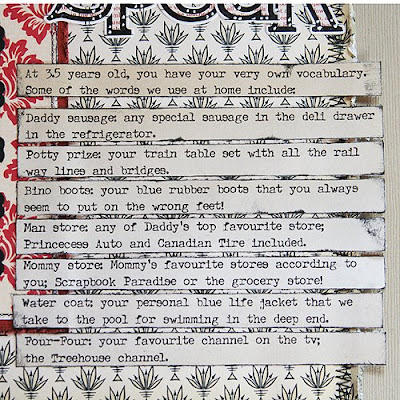 speak
At 3.5 years old, you have your very own vocabulary.
Some of the words we use at home include:
Daddy sausage: any special sausage in the deli drawer
in the refrigerator.
Potty prize: your train table set with all the rail
way lines and bridges.
Bino boots: your blue rubber boots that you always
seem to put on the wrong feet!
Man store: any of Daddy's top favourite store;
Princecess Auto and Canadian Tire included.
Mommy store: Mommy's favourite stores according to
you; Scrapbook Paradise or the grocery store!
Water coat: your personal blue life jacket that we
take to the pool for swimming in the deep end.
Four-Four: your favourite channel on the tv;
the Treehouse channel.